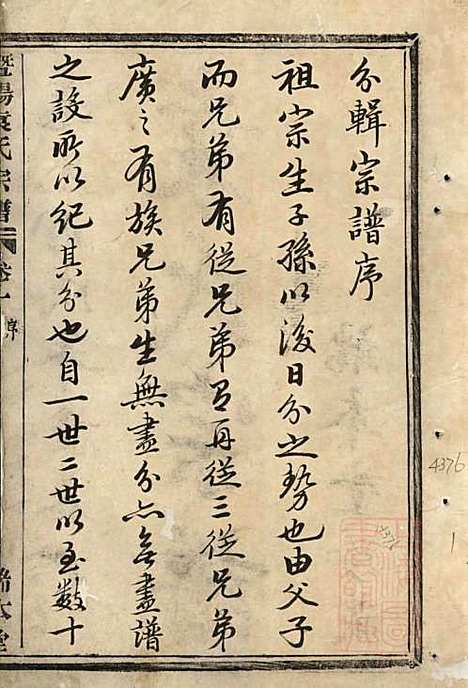 分輯宗譜序
祖宗生子孫以後日分之勢也由父子
而兄弟有從兄弟有再從三從兄弟
廣之有族兄弟生無盡分亦無盡譜
之設所以紀其分也自一世二世以至數十
暨陽袁氏宗譜 卷一 序
4376
1